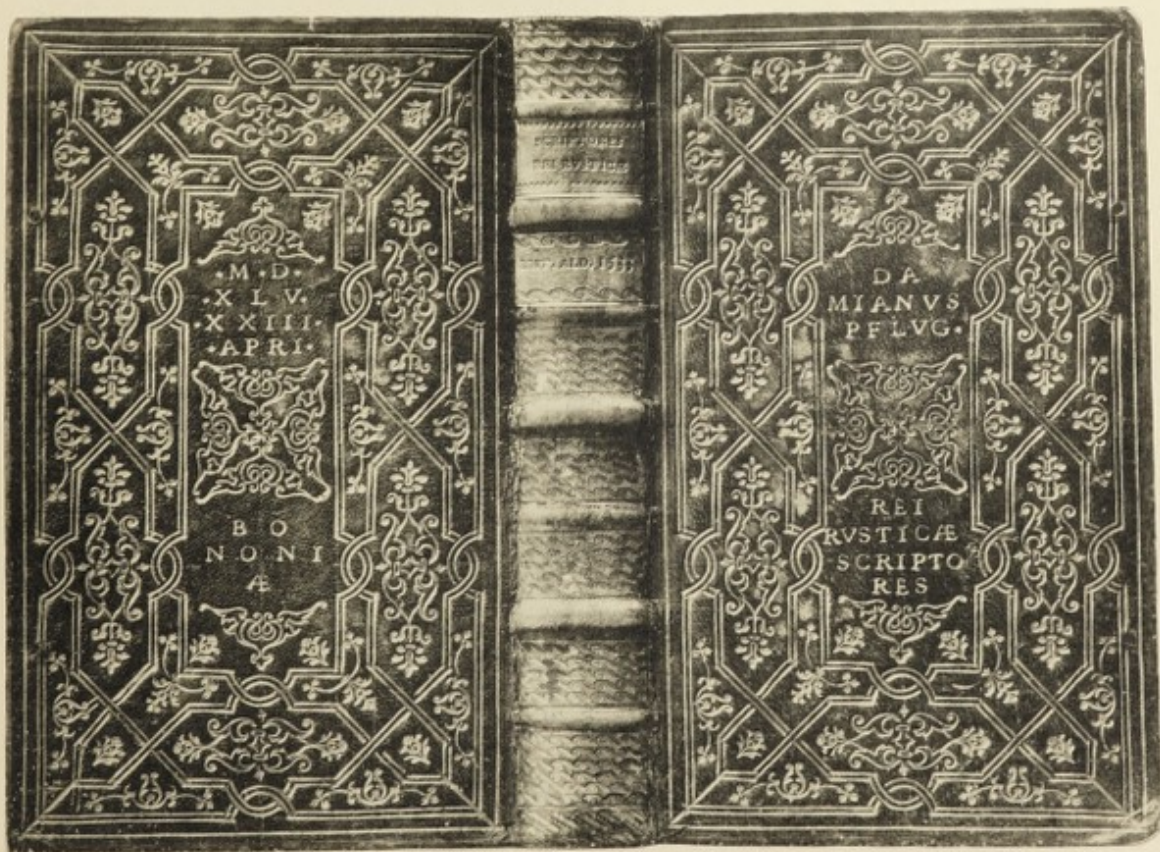 ·M·D·
·X L V·
·X X I I I·
·A P R I·
B O
N O N I
Æ
SCRIPTORES
REI RVSTICÆ
ALD. 15
D A
M I A N V S
P F L V G·
R E I
R V S T I C Æ
S C R I P T O
R E S